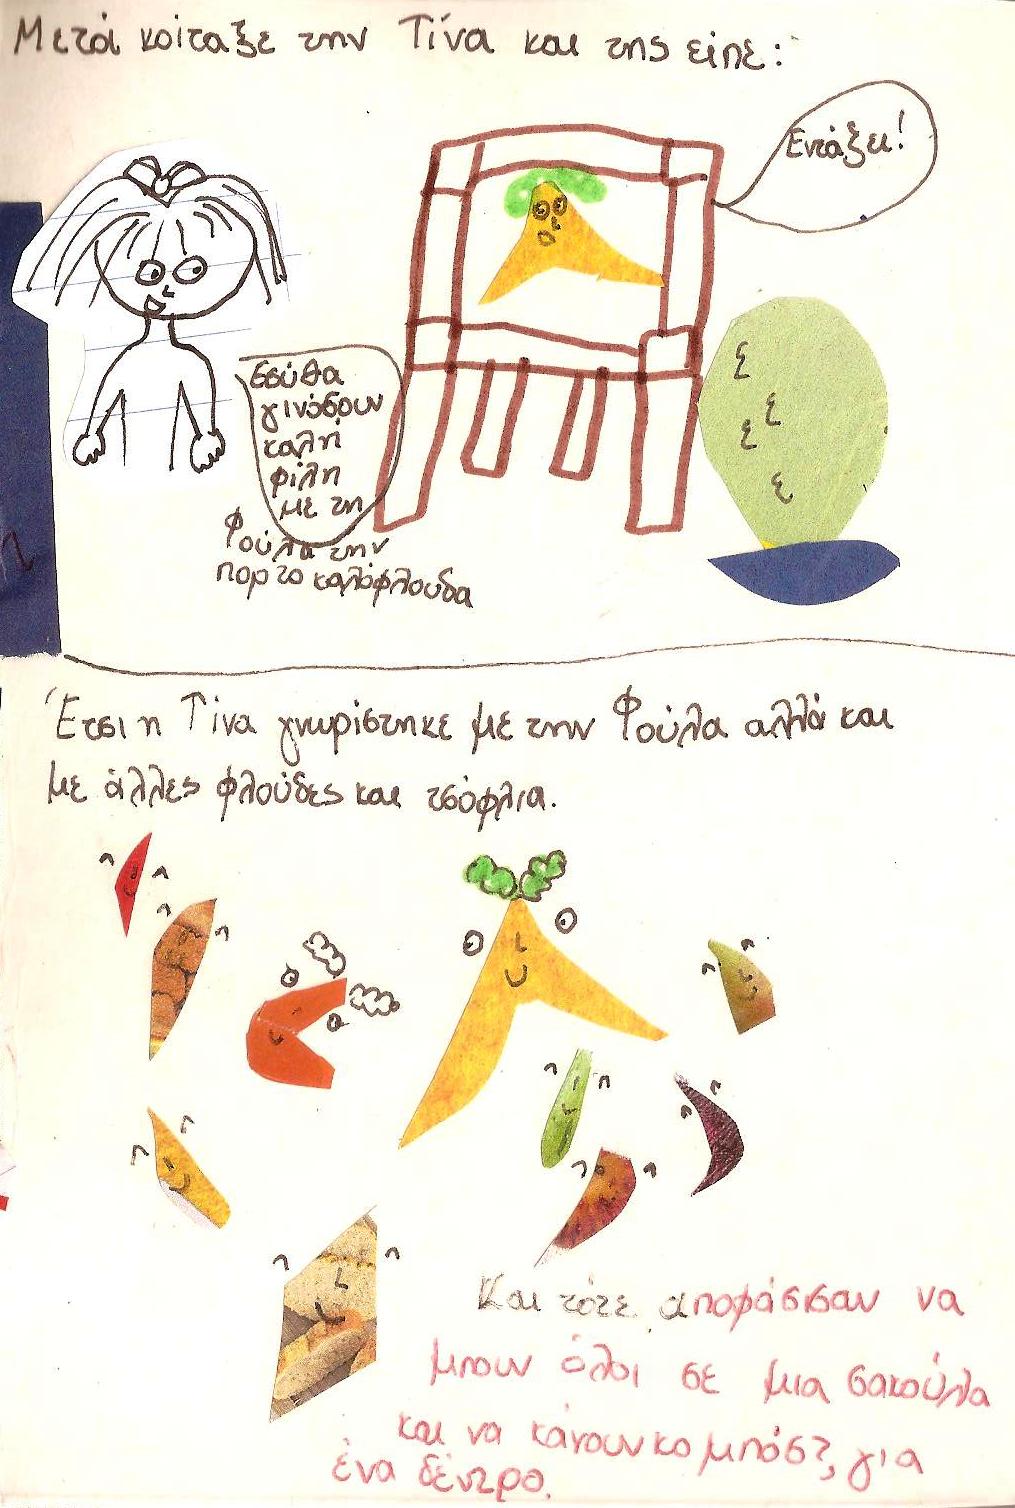 Μετά κοίταξε την Τίνα και της είπε:
Εντάξει!
Εσύ θα
γινόσουν
καλή
φίλη
με τη
Φούλα την
πορτοκαλόφλουδα
Έτσι η Τίνα γνωρίστηκε με την Φούλα αλλά και
με άλλες φλούδες και τσόφλια.
Και τότε αποφάσισαν να
μπουν όλοι σε μια σακούλα
και να κάνουν κομπόστ, για
ένα δέντρο.